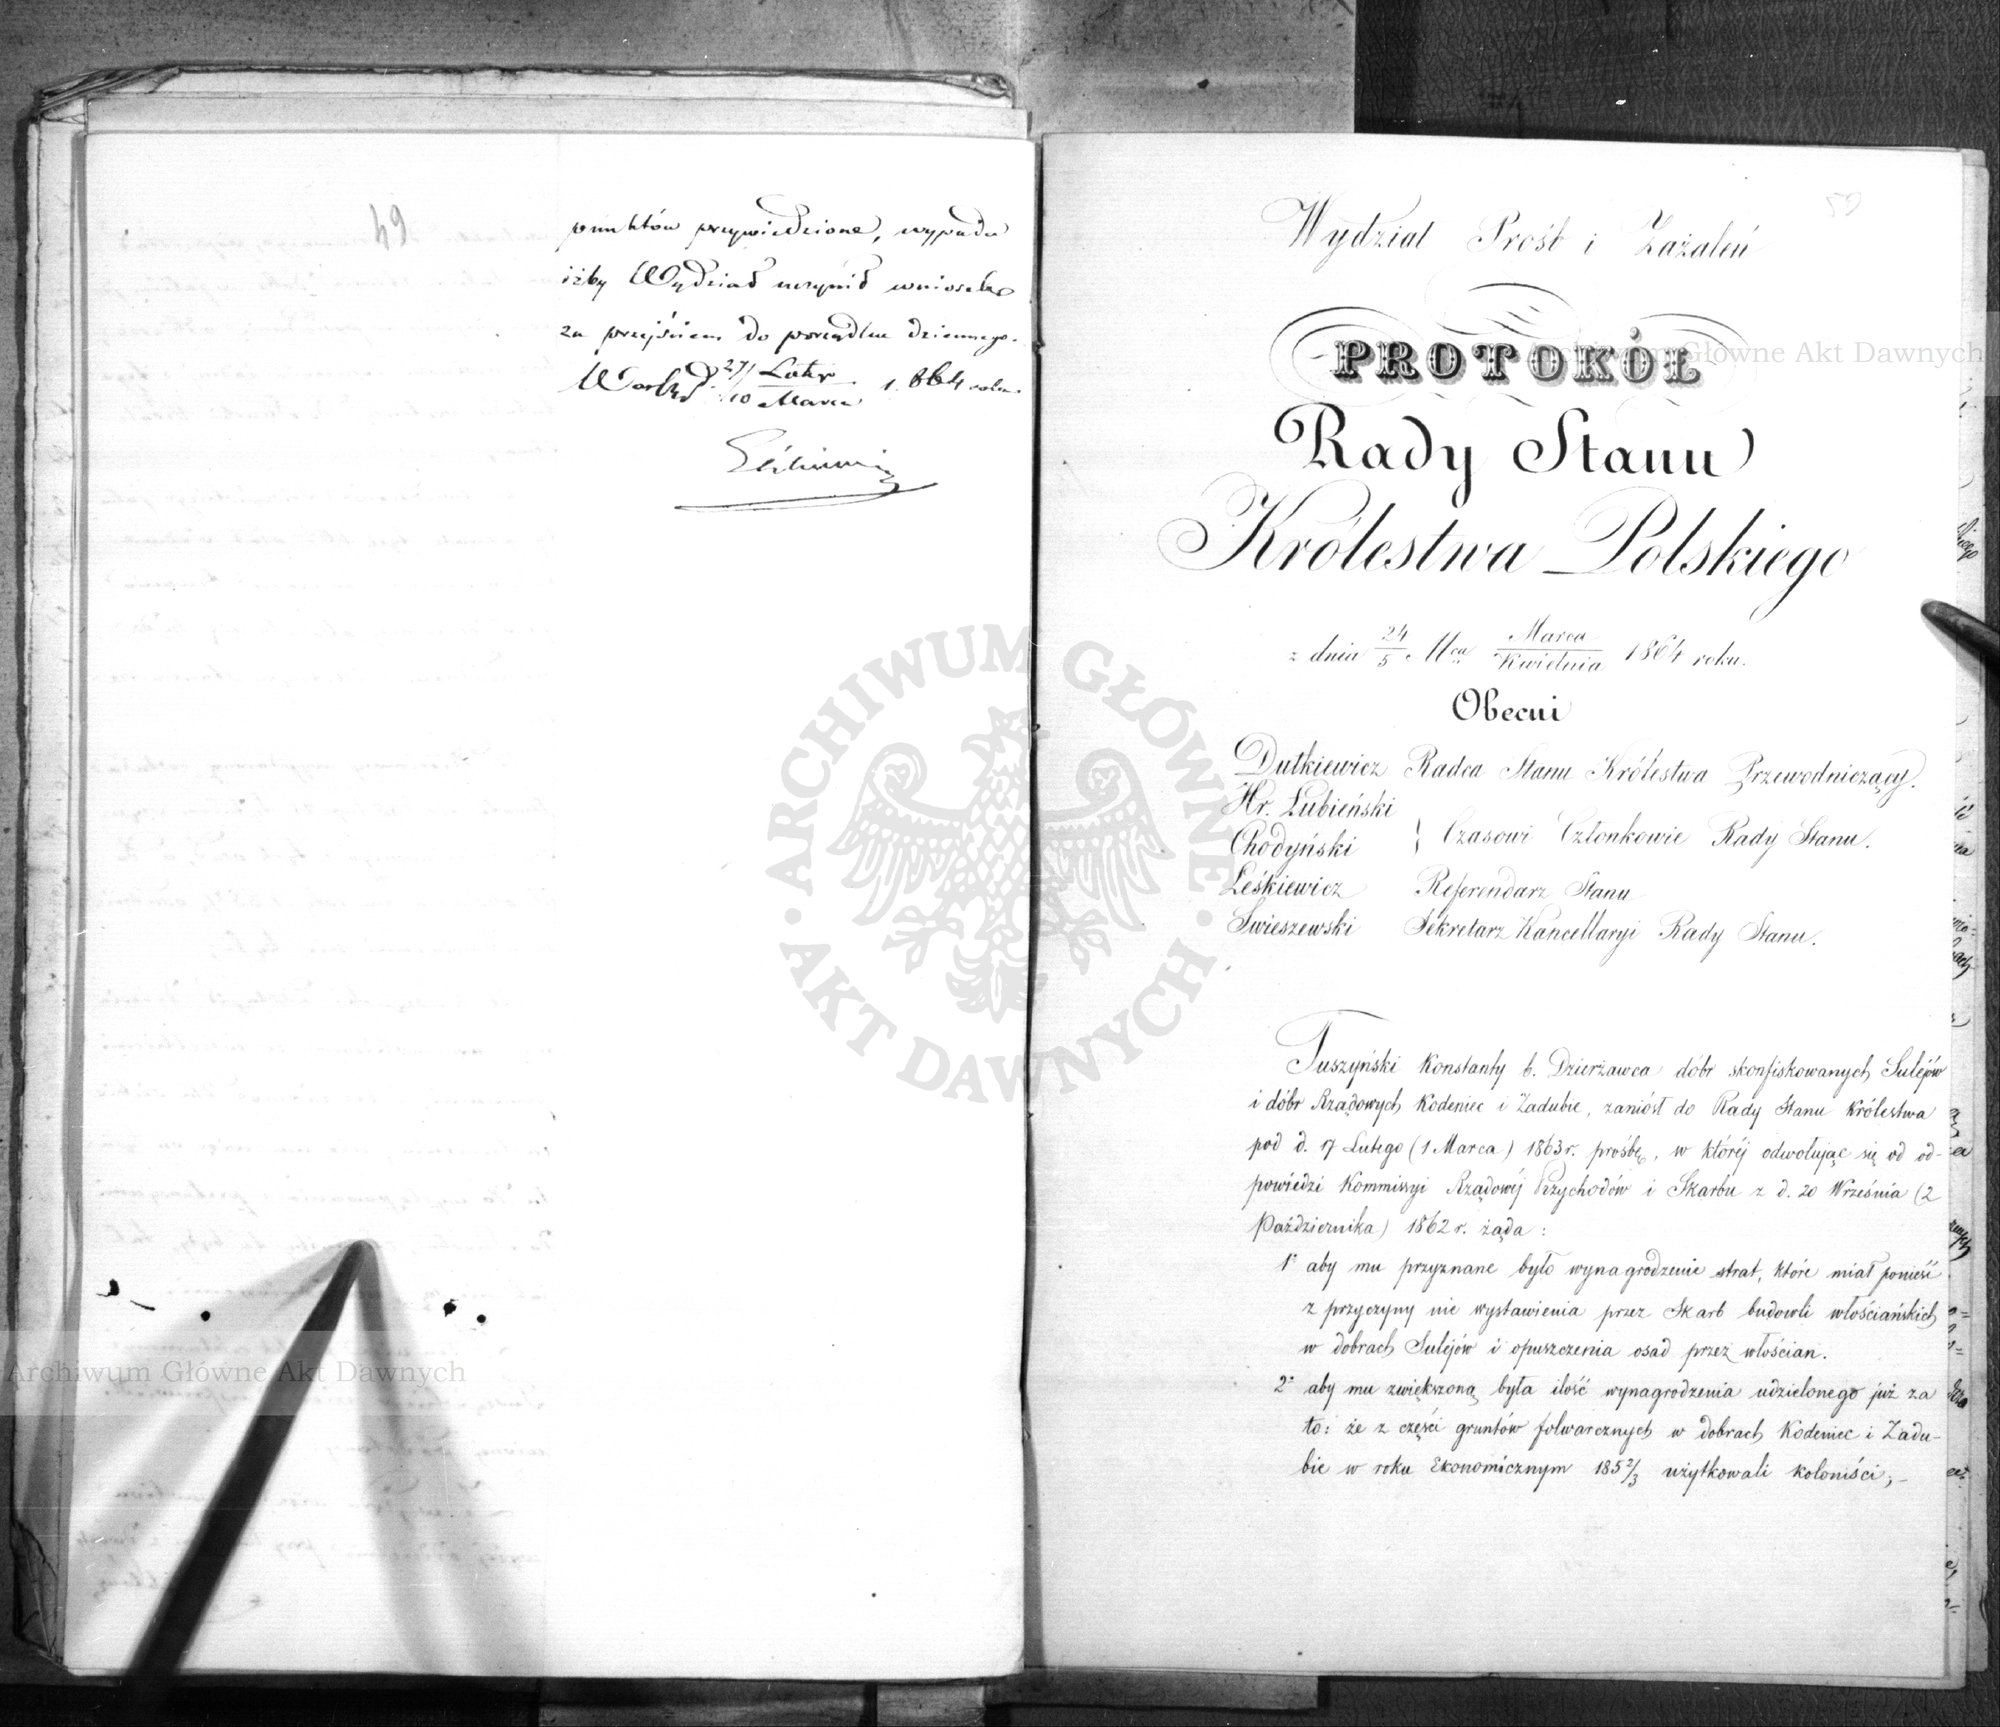 49
punktów przywiedzione, wypada
iżby Wydział uczynił wniosek
za przejściem do porządku dziennego.
27/10 Lutego/Marca 1864 roku.
50
Wydział Próśb i Zażaleń
PROTOKÓŁ
Rady Stanu
Królestwa Polskiego
z dnia 24/5 Mca Marca/Kwietnia 1864 roku.
Obecni
Dutkiewicz Radca Stanu Królestwa Przewodniczący.
Hr. Łubieński
Chodyński } Czasowi Członkowie Rady Stanu.
Leśkiewicz Referendarz Stanu
Swieszewski Sekretarz Kancellaryi Rady Stanu.
Tuszyński Konstanty b. Dzierżawca dóbr skonfiskowanych Sulejów
i dóbr Rządowych Kodeniec i Zadubie, zaniósł do Rady Stanu Królestwa
pod d. 17 Lutego (1 Marca) 1863 r. prośbę, w której odwołując się od od-
powiedzi Kommissyi Rządowéj Przychodów i Skarbu z d. 20 Września (2
Października) 1862 r. żąda:
1° aby mu przyznane było wynagrodzenie strat, które miał ponieść
z przyczyny nie wystawienia przez Skarb budowli włościańskich
w dobrach Sulejów i opuszczenia osad przez włościan.
2° aby mu zwiększoną była ilość wynagrodzenia udzielonego już za
to: że z części gruntów folwarcznych w dobrach Kodeniec i Zadu-
bie w roku Ekonomicznym 185 2/3 użytkowali koloniści;-
ARCHIWUM GŁÓWNE
AKT DAWNYCH
Archiwum Główne Akt Dawnych
Archiwum Główne Akt Dawnych